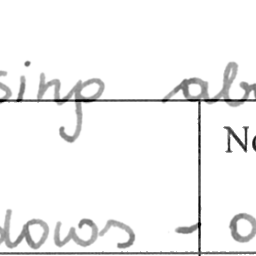 sing ab
No
dows - o